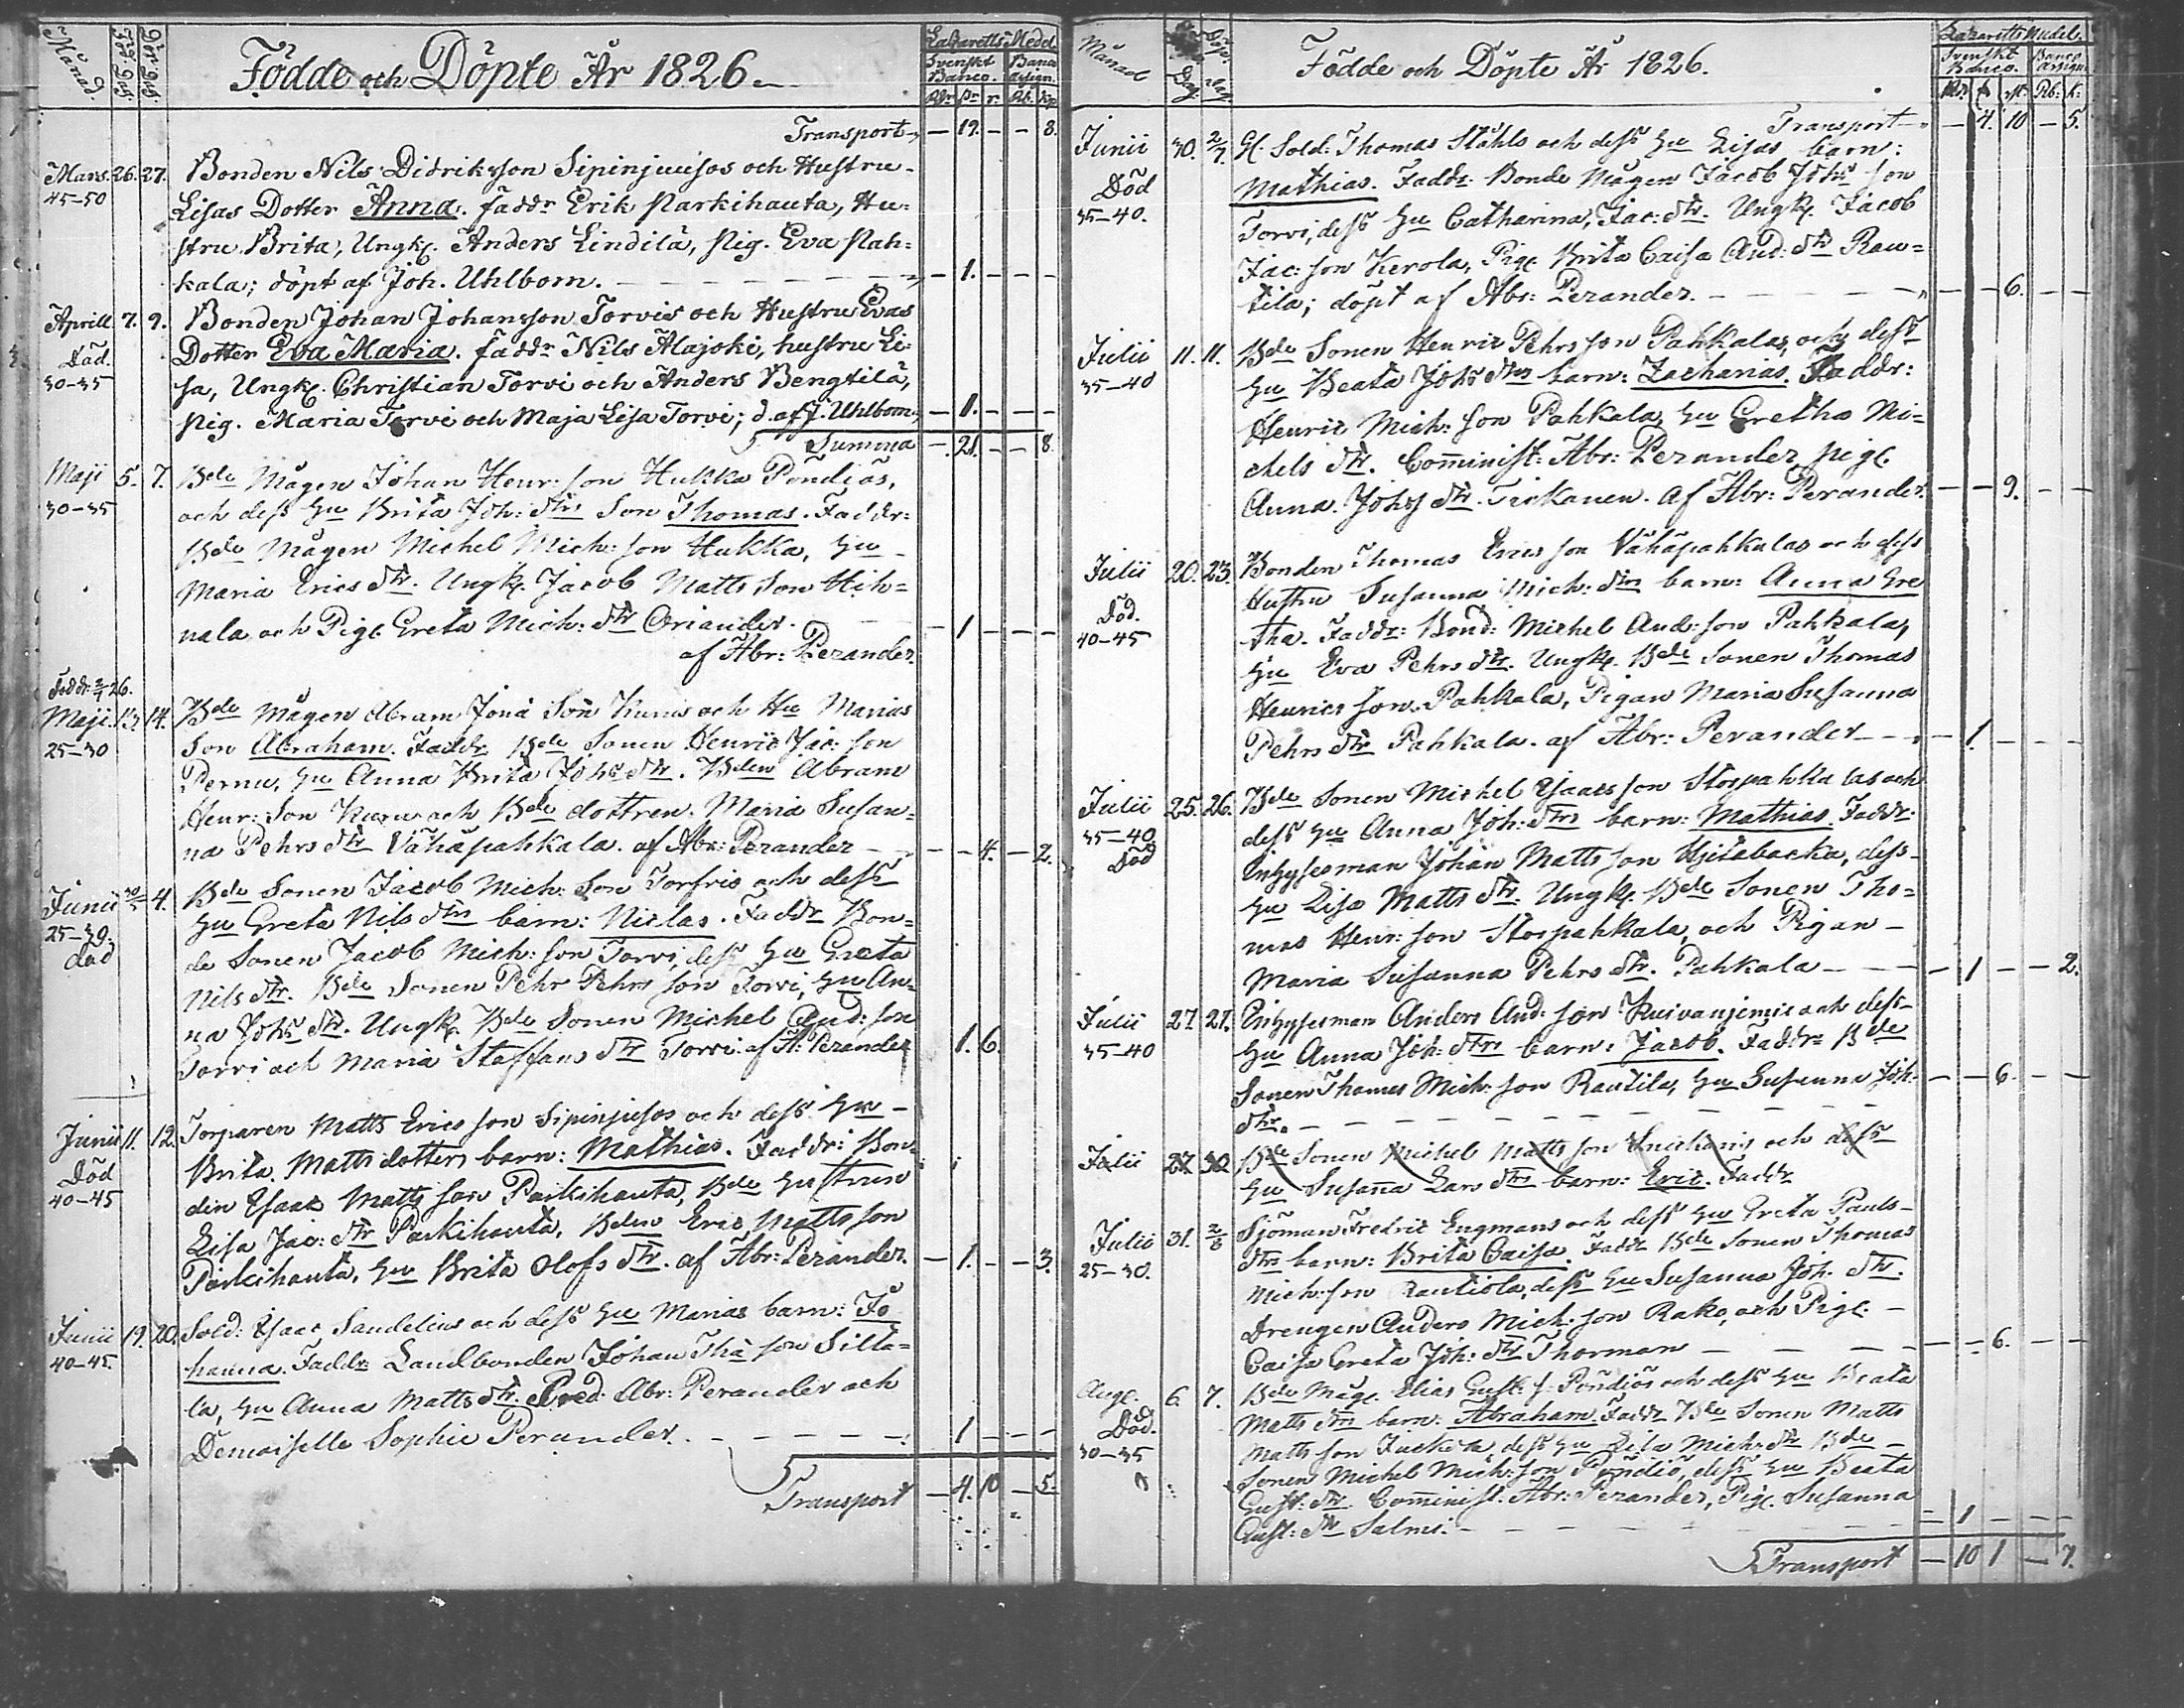 Månad.
Föd. dag.
Döp. dag.
Födde och Döpte År 1826.
Lazaretts Medel.
Svenskt Banco.
Banco assign.
Rdr sk r. Rb. kop
Transport — 19. — — 8.
Mars. 26. 27. Bonden Nils Didriksson Sipinjuusos och Hustru
45-50 Lisas Dotter Anna. faddr Erik Parkihauta, Hu-
stru Brita, Ungk. Anders Lindilä, Pig. Eva Pah-
kala; döpt af Joh. Uhlbom. — 1. — — —
Aprill 7. 9. Bonden Johan Johansson Torvis och Hustru Evas
Död. Dotter Eva Maria. faddr Nils Alajoki, hustru Li-
30-35 sa, Ungk. Christian Torvi och Anders Bengtilä,
Pig. Maria Torvi och Maja Lisa Torvi; d. af J. Uhlbom. — 1. — — —
Summa — 21. — — 8.
Maji 5. 7. Bde Mågen Johan Henr: son Hukka Pöndiös,
30-35 och dess Hu Brita Joh: dtrs Son Thomas. Faddr:
Bde Mågen Michel Mich: son Hukka, Hu
Maria Erics dtr. Ungk. Jacob Matts son Hih=
nala och Pig. Greta Mich: dtr Oriander. — 1 — — —
af Abr: Perander.
Födde 2/1 26.
Maji. 13. 14. Bde Mågen Abram Jona Son Kunis och Hu Marias
25-30 Son Abraham. Faddr Bde Sonen Henric Jac: son
Pernu, Hu Anna Brita Johs dtr. Bden Abram
Henr: Son Kunu och Bde dottren Maria Susan=
na Pehrs dtr Vähäpahkala. af Abr: Perander — — 4. — 2.
Junii 30/5 4. Bde Sonen Jacob Mich: Son Torfvis och dess
25-30. Hu Greta Nils dtrs barn: Niclas. Faddr Bon-
död de Sonen Jacob Mich: son Torvi, dess Hu Greta
Nils dtr. Bde Sonen Pehr Pehrs son Torvi, Hu An-
na Johs dtr. Ungk. Bde Sonen Michel And: son
Torvi och Maria Staffans dtr Torvi. af A: Perander 1. 6.
Junii 11. 12. Torparen Matts Erics son Sipinjusos och dess Hu
Död Brita Matts dotters barn: Mathias. Faddr: Bon-
40-45 den Isaac Matts son Parkihauta, Bde Hustrun
Lisa Jac: dtr Parkihauta, Bden Eric Matts son
Parkihauta, Hu Brita Olofs dtr. af Abr: Perander. — 1. — — 3.
Junii 19. 20. Sold: Isaac Sandelius och dess Hu Marias barn: Jo
40-45. hanna. Faddr: Landbonden Johan Tho: son Silta=
la, Hu Anna Matts dtr. Pred: Abr: Perander och
Demoiselle Sophie Perander. — 1 — — —
Transport — 4. 10 — 5.
Månad
Dag.
Döp. dag
Födde och Döpte År 1826.
Lazaretts Medel.
Svenskt Banco.
Banco assign.
Rdr. sk rst. Rb: k.
Transport — 4. 10 — 5.
Junii 30. 2/7. Gl. Sold: Thomas Ståhls och dess Hu Lisas barn:
Död Mathias. Faddr: Bonde Mågen Jacob Johs son
35-40. Torvi, dess Hu Catharina Jac: dtr. Ungk. Jacob
Jac: son Kerola, Pig. Brita Caisa And: dtr Rau=
tila; döpt af Abr: Perander. — — 6. — —
Julii 11. 11. Bde Sonen Henric Pehrs son Pahkalas, och dess
35-40 Hu Beata Johs dtrs barn: Zacharias. Faddr:
Henric Mich: son Pahkala, Hu Gretha Mi=
chels dtr. Cominist: Abr: Perander, pig.
Anna Johs dtr. Tirkanen. af Abr: Perander. — — 9. — —
Julii 20. 23. Bonden Thomas Erics son Vähäpahkalas och dess
Död. Hustru Susanna Mich: dtrs barn: Anna Gre
40-45 tha. Faddr: Bond: Michel And: son Pahkala,
Hu Eva Pehrs dtr. Ungk. Bde Sonen Thomas
Henrics son Pahkala, Pigan Maria Susanna
Pehrs dtr Pahkala. af Abr: Perander — 1. — — —
Julii 25. 26. Bde Sonen Michel Isaacs son Storpahkalas och
35-40 dess Hu Anna Joh: dtrs barn: Mathias. Faddr:
Död Inhysesman Johan Matts son Hjitabacka, dess
Hu Lisa Matts dtr. Ungk. Bde Sonen Tho=
mas Henr: son Storpahkala, och Pigan
Maria Susanna Pehrs dtr. Pahkala — 1 — — 2.
Julii 27 27. Inhysesman Anders And: son Kuivanjemis och dess
35-40 Hu Anna Joh: dtrs barn: Jacob. Faddr: Bde
Sonen Thomas Mich: son Rautila, Hu Susanna Joh: — — 6. — —
dtr.
Julii 27. 30 Bde Sonen Michel Matts son och dess
Hu Susana Lars dtrs barn: Eric. Faddr
Julii 31. 2/8 Sjöman Fredric Engmans och dess Hu Greta Pauls-
25-30. dtrs barn: Brita Caisa. Faddr Bde Sonen Thomas
Mich: son Rautiola, dess Hu Susanna Joh. dtr.
Drengen Anders Mich: son Rako, och Pig.
Caisa Greta Joh: dtr Thorman — — 6. — —
Aug. 6. 7. Bde Måg. Elias Gust: s: Pöndiös och dess Hu Beata
Död. Matts dtrs barn: Abraham. Faddr Bde Sonen Matts
30-35 Matts son dess Hu Lisa Mich: dtr Bde
Sonen Michel Mich: son Pöndiö, dess Hu Beata
Gust: dtr. Cominist: Abr: Perander, Pig. Susanna
Gust: dtr Salmi. — 1 — — —
Transport — 10 1 — 7.